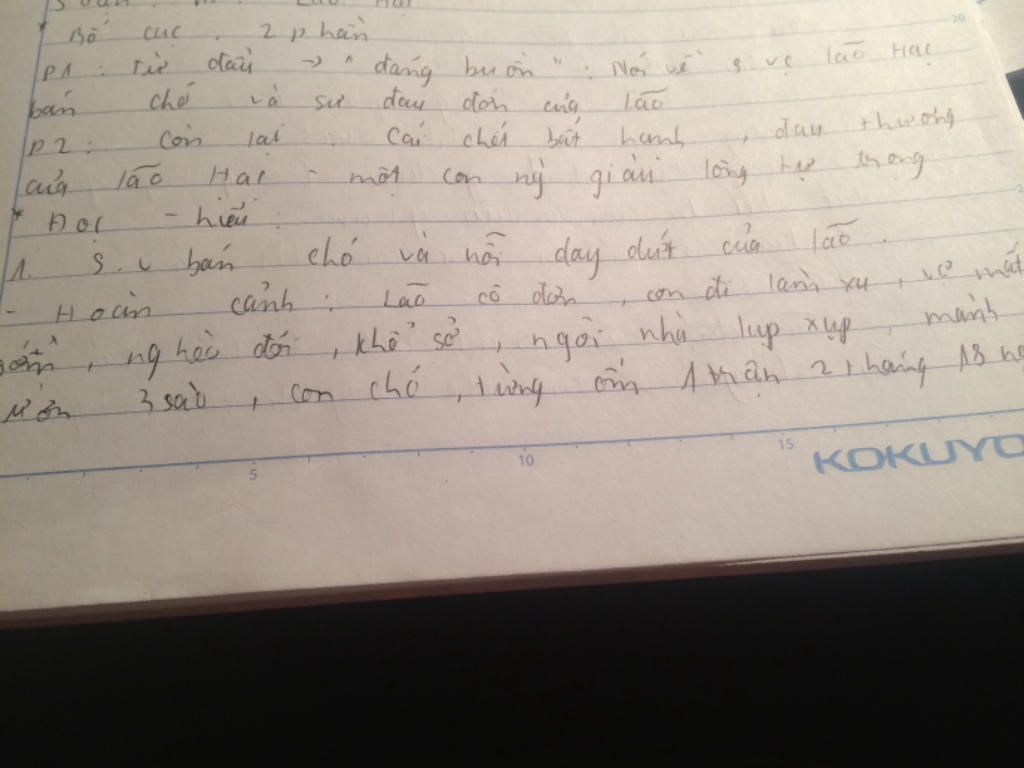 Lão Hạc
* Bố cục. 2 phần
P1: Từ đầu → "đáng buồn": Nói về s vc lão Hạc
bán chó và sự đau đớn của lão
P2: Còn lại. Cái chết bất hạnh, đau thương
của lão Hạc - một con ng giàu lòng tự trọng
* Đọc - hiểu
1. S.v bán chó và nỗi day dứt của lão.
- Hoàn cảnh: Lão cô đơn, con đi làm xa, vợ mất
sớm, nghèo đói, khổ sở, ngôi nhà lụp xụp, mảnh
vườn 3 sào, con chó, từng ốm 1 trận 2 tháng 18 ng
5 10 15
KOKUYO